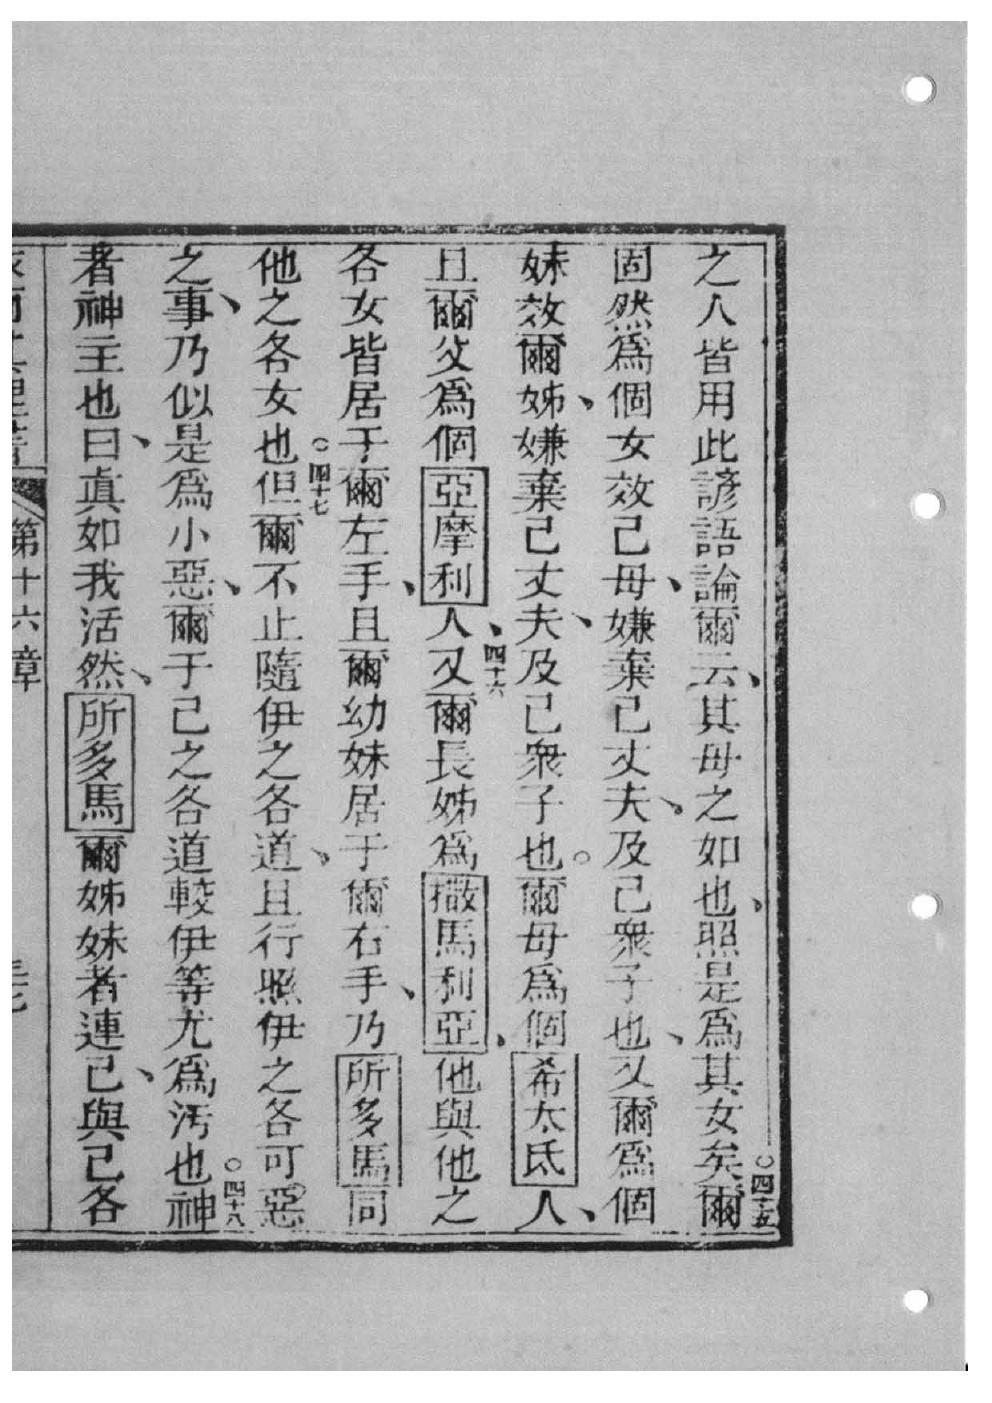 之人皆用此諺語論爾云、其母之如也、照是為其女矣○四十五爾
固然為個女效己母、嫌棄己丈夫、及己衆子也、又爾為個
妹效爾姊、嫌棄己丈夫、及己衆子也。爾母為個希太氐人、
且爾父為個亞摩利人、○四十六又爾長姊為撒馬利亞、他與他之
各女皆居于爾左手、且爾幼妹居于爾右手、乃所多馬同
他之各女也○四十七但爾不止隨伊之各道、且行照伊之各可惡
之事、乃似是為小惡、爾于己之各道較伊等尤為汚也○四十八神
者神主也曰、眞如我活然、所多馬爾姊妹者連己、與己各
第十六章